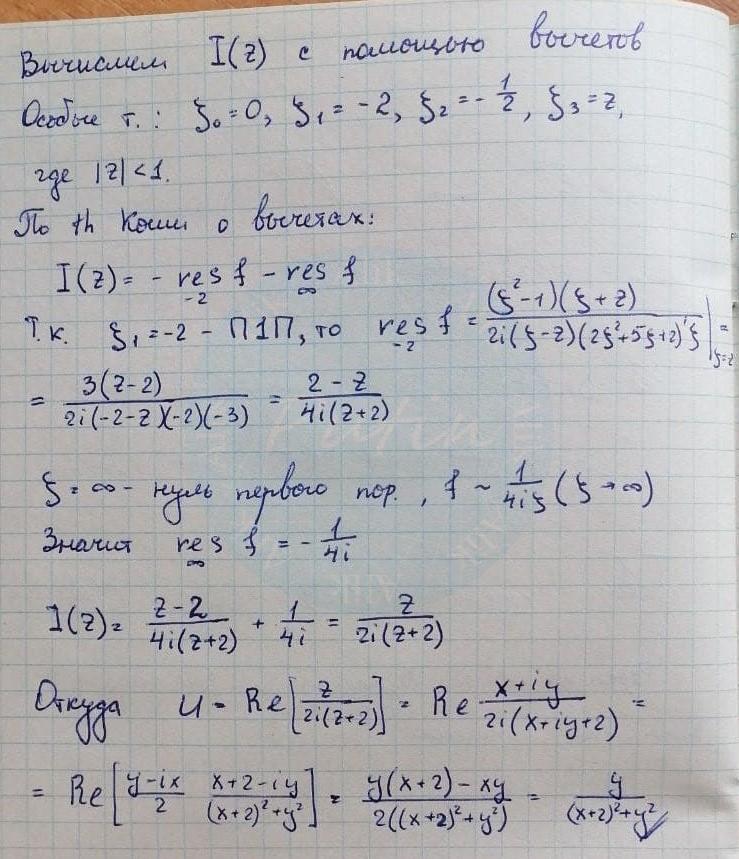 Вычислим I(z) с помощью вычетов
Особые т.: ξ₀=0, ξ₁=-2, ξ₂=-1/2, ξ₃=z,
где |z|<1.
По th Коши о вычетах:
I(z)= - res_{-2} f - res_∞ f
Т.к. ξ₁=-2 - П1П, то res_{-2} f = (ξ²-1)(ξ+z) / 2i(ξ-z)(2ξ²+5ξ+2)'ξ |_{ξ=-2} =
= 3(z-2) / 2i(-2-z)(-2)(-3) = 2-z / 4i(z+2)
ξ=∞ - нуль первого пор., f ~ 1/4iξ (ξ→∞)
Значит res_∞ f = - 1/4i
I(z)= z-2 / 4i(z+2) + 1/4i = z / 2i(z+2)
Откуда u = Re[z / 2i(z+2)] = Re x+iy / 2i(x+iy+2) =
= Re[y-ix / 2 x+2-iy / (x+2)²+y²] = y(x+2)-xy / 2((x+2)²+y²) = y / (x+2)²+y²